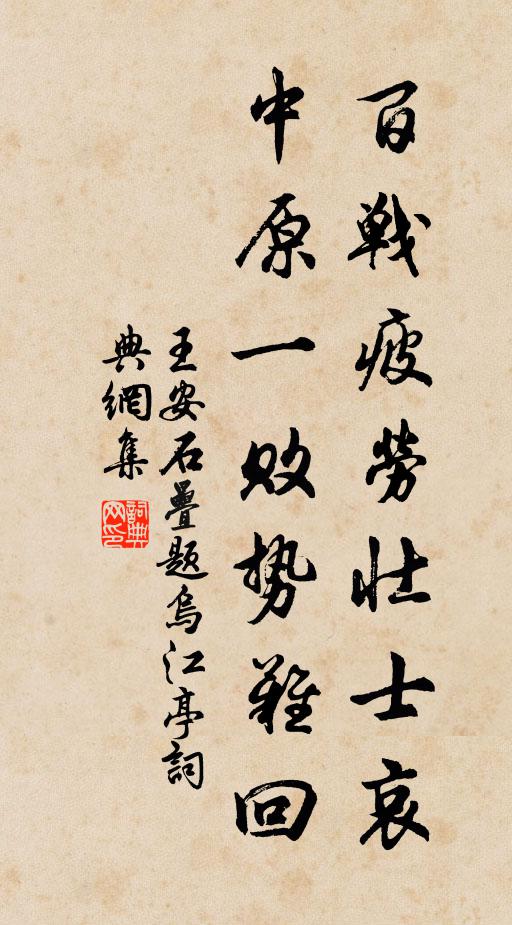 百戰疲勞壯士哀
中原一敗势難回
王安石疊题烏江亭詞
典網集
詞典
网印